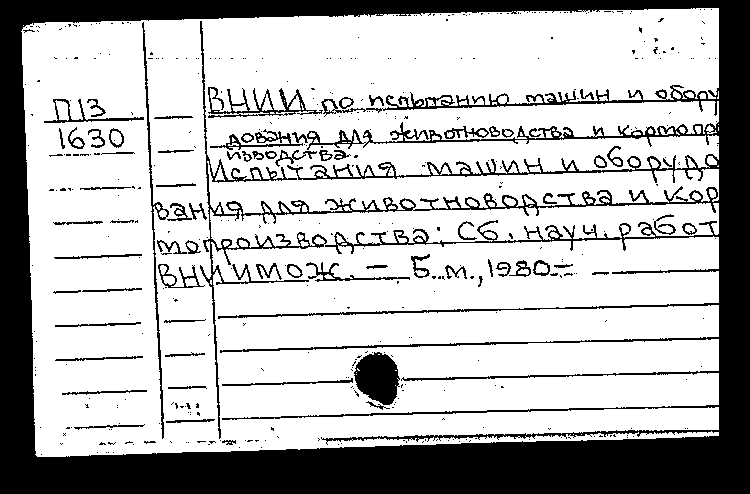 П13
1630
ВНИИ по испытанию машин и обору
дования для животноводства и кормопро
изводства.
Испытания машин и оборудо
вания для животноводства и кор
мопроизводства; Сб. науч. работ
ВНИИМОЖ. — Б. м., 1980—